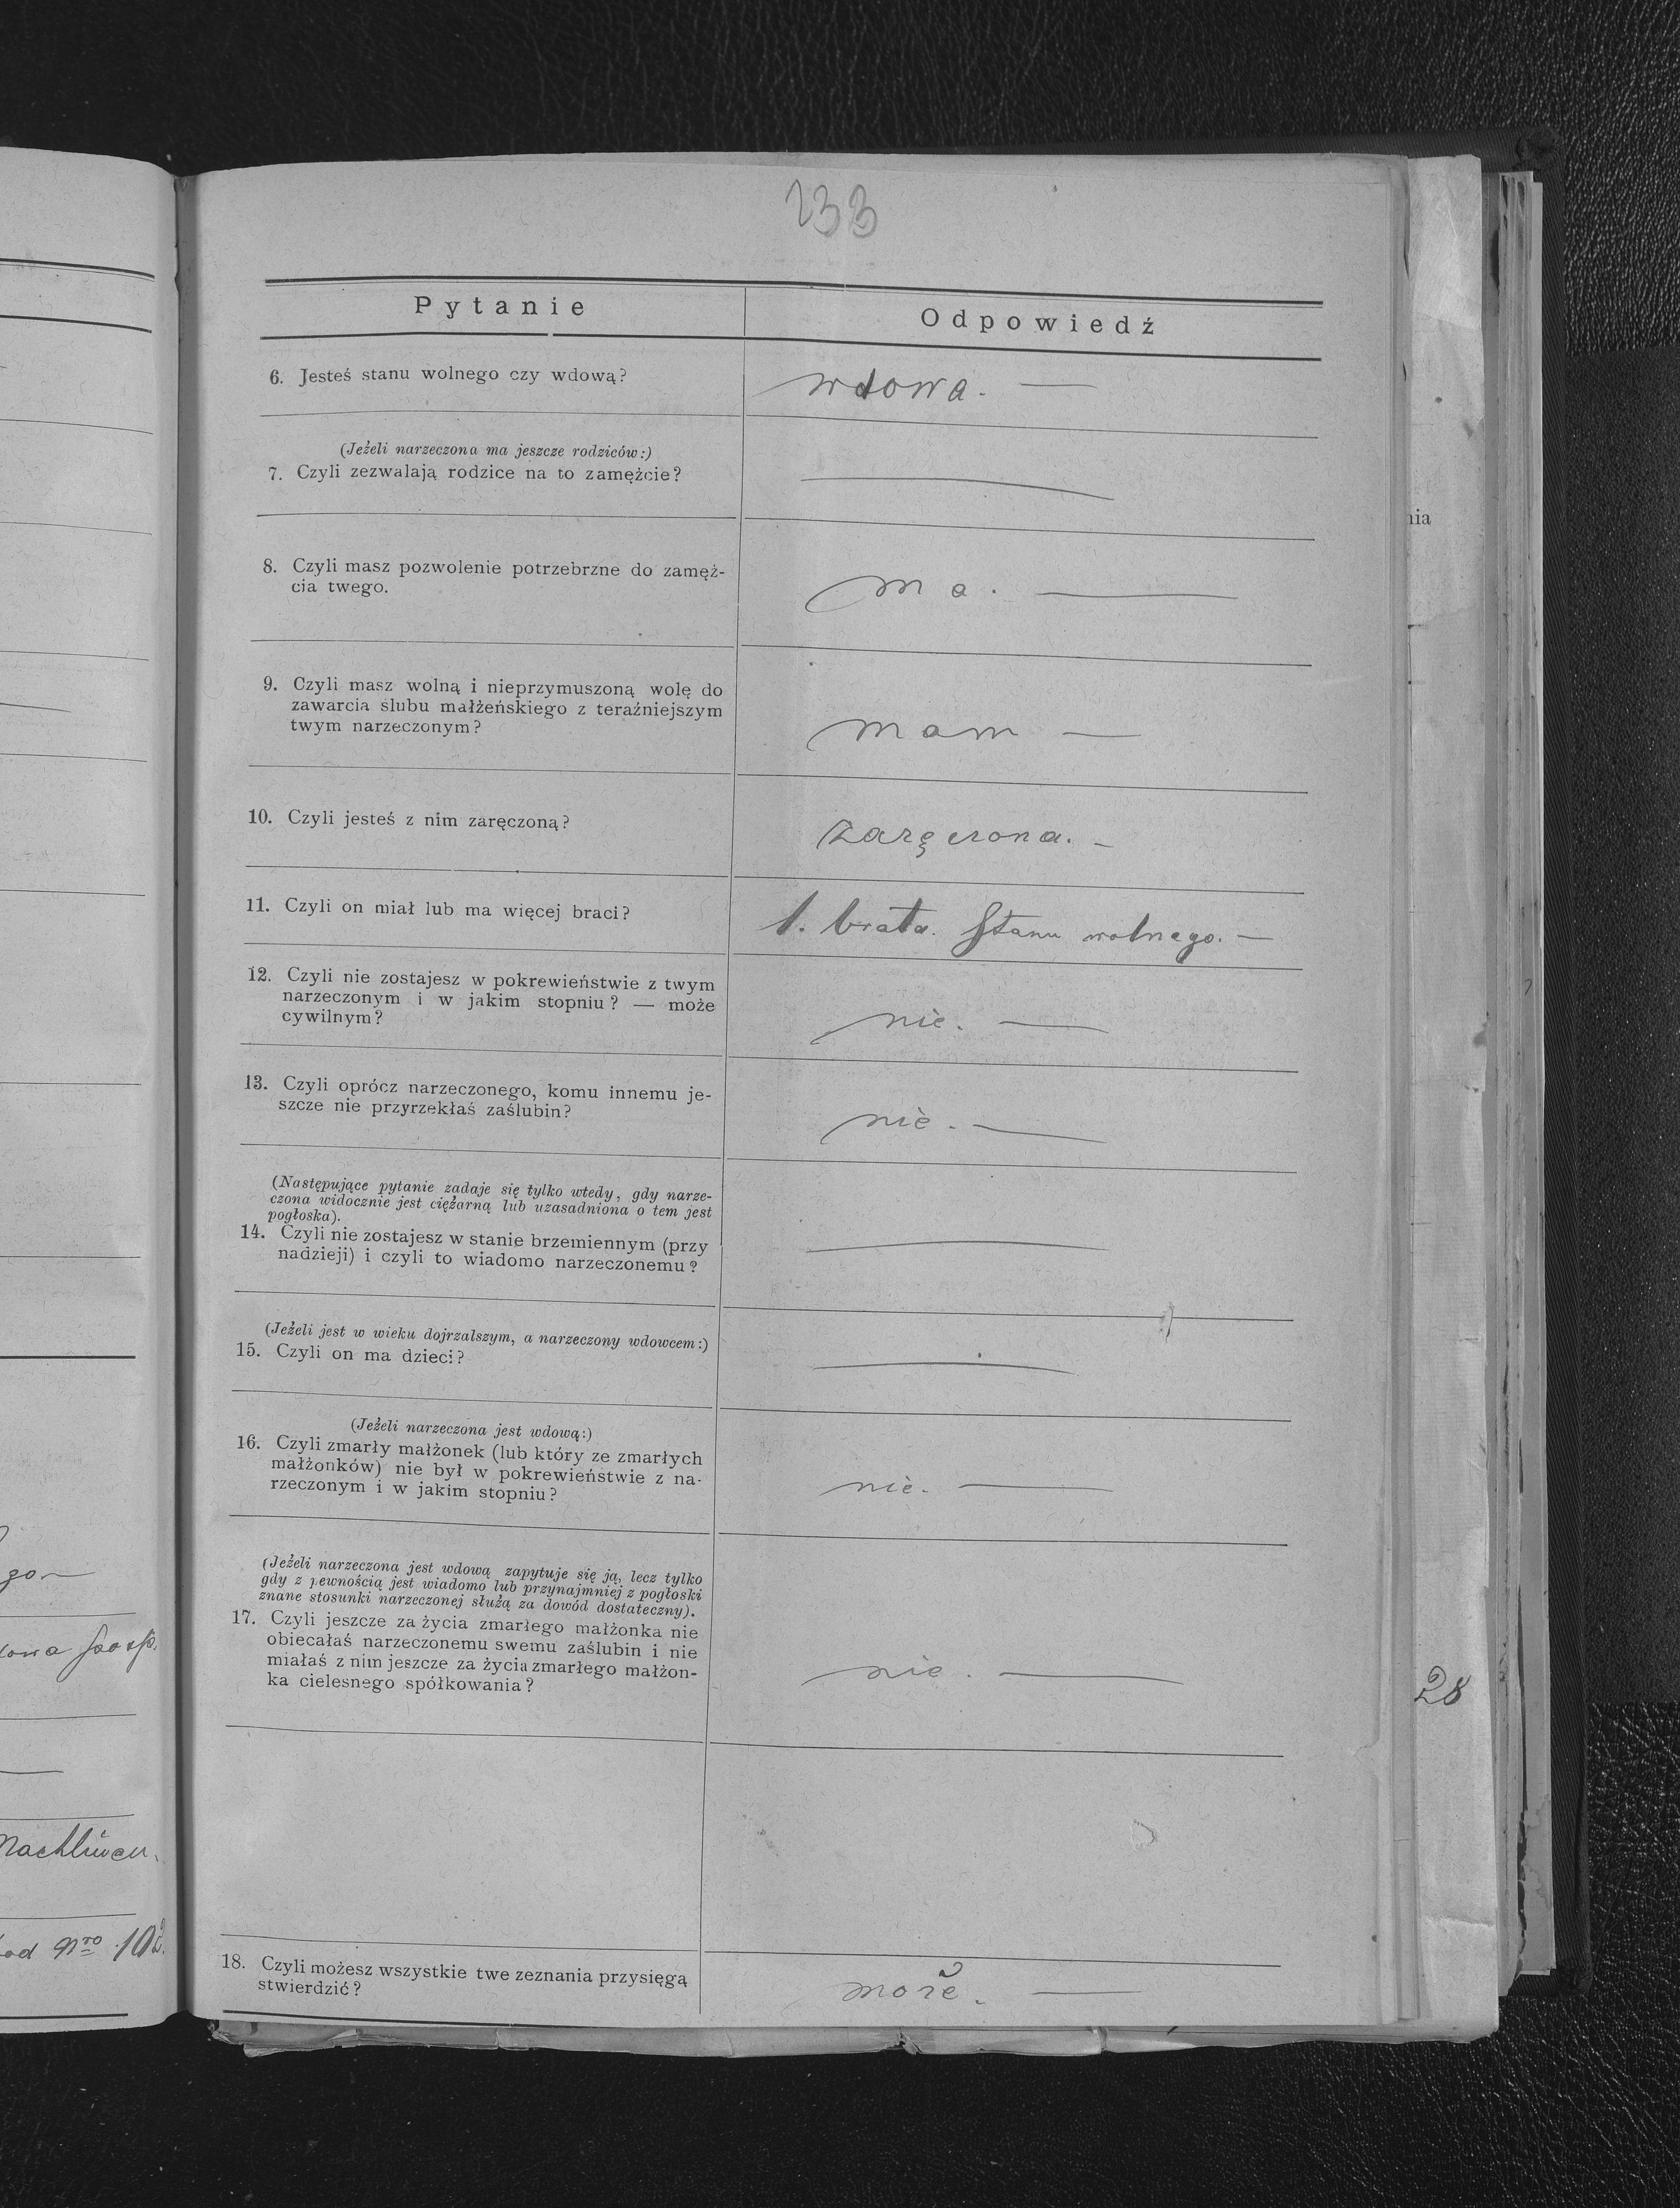 133
Pytanie
Odpowiedź
6. Jesteś stanu wolnego czy wdową?
wdowa. —
(Jeżeli narzeczona ma jeszcze rodziców:)
7. Czyli zezwalają rodzice na to zamężcie?
—
8. Czyli masz pozwolenie potrzebrzne do zamęż-
cia twego.
ma. —
9. Czyli masz wolną i nieprzymuszoną wolę do
zawarcia ślubu małżeńskiego z teraźniejszym
twym narzeczonym?
mam —
10. Czyli jesteś z nim zaręczoną?
zaręczona. —
11. Czyli on miał lub ma więcej braci?
1. brata. Stanu wolnego. —
12. Czyli nie zostajesz w pokrewieństwie z twym
narzeczonym i w jakim stopniu? — może
cywilnym?
nie. —
13. Czyli oprócz narzeczonego, komu innemu je-
szcze nie przyrzekłaś zaślubin?
nie. —
(Następujące pytanie zadaje się tylko wtedy, gdy narze-
czona widocznie jest ciężarną lub uzasadniona o tem jest
pogłoska).
14. Czyli nie zostajesz w stanie brzemiennym (przy
nadzieji) i czyli to wiadomo narzeczonemu?
—
(Jeżeli jest w wieku dojrzalszym, a narzeczony wdowcem:)
15. Czyli on ma dzieci?
—
(Jeżeli narzeczona jest wdową:)
16. Czyli zmarły małżonek (lub który ze zmarłych
małżonków) nie był w pokrewieństwie z na-
rzeczonym i w jakim stopniu?
nie. —
(Jeżeli narzeczona jest wdową zapytuje się ją, lecz tylko
gdy z pewnością jest wiadomo lub przynajmniej z pogłoski
znane stosunki narzeczonej służą za dowód dostateczny).
17. Czyli jeszcze za życia zmarłego małżonka nie
obiecałaś narzeczonemu swemu zaślubin i nie
miałaś z nim jeszcze za życia zmarłego małżon-
ka cielesnego spółkowania?
nie. —
18. Czyli możesz wszystkie twe zeznania przysięgą
stwierdzić?
może. —
nia
28
go —
od Nro 102